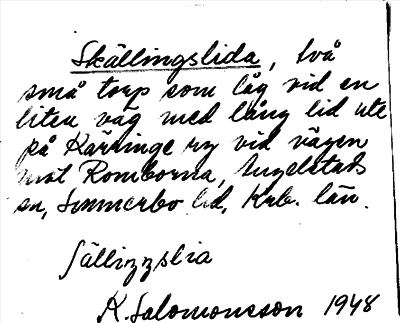 Skällingslida, två
små torp som låg vid en
liten väg med lång lid ute
på Käringe ry vid vägen
mot Romborna, Angelstads
sn, Sunnerbo hd, Krb. län.
sällizzslia
K. Salomonsson 1948